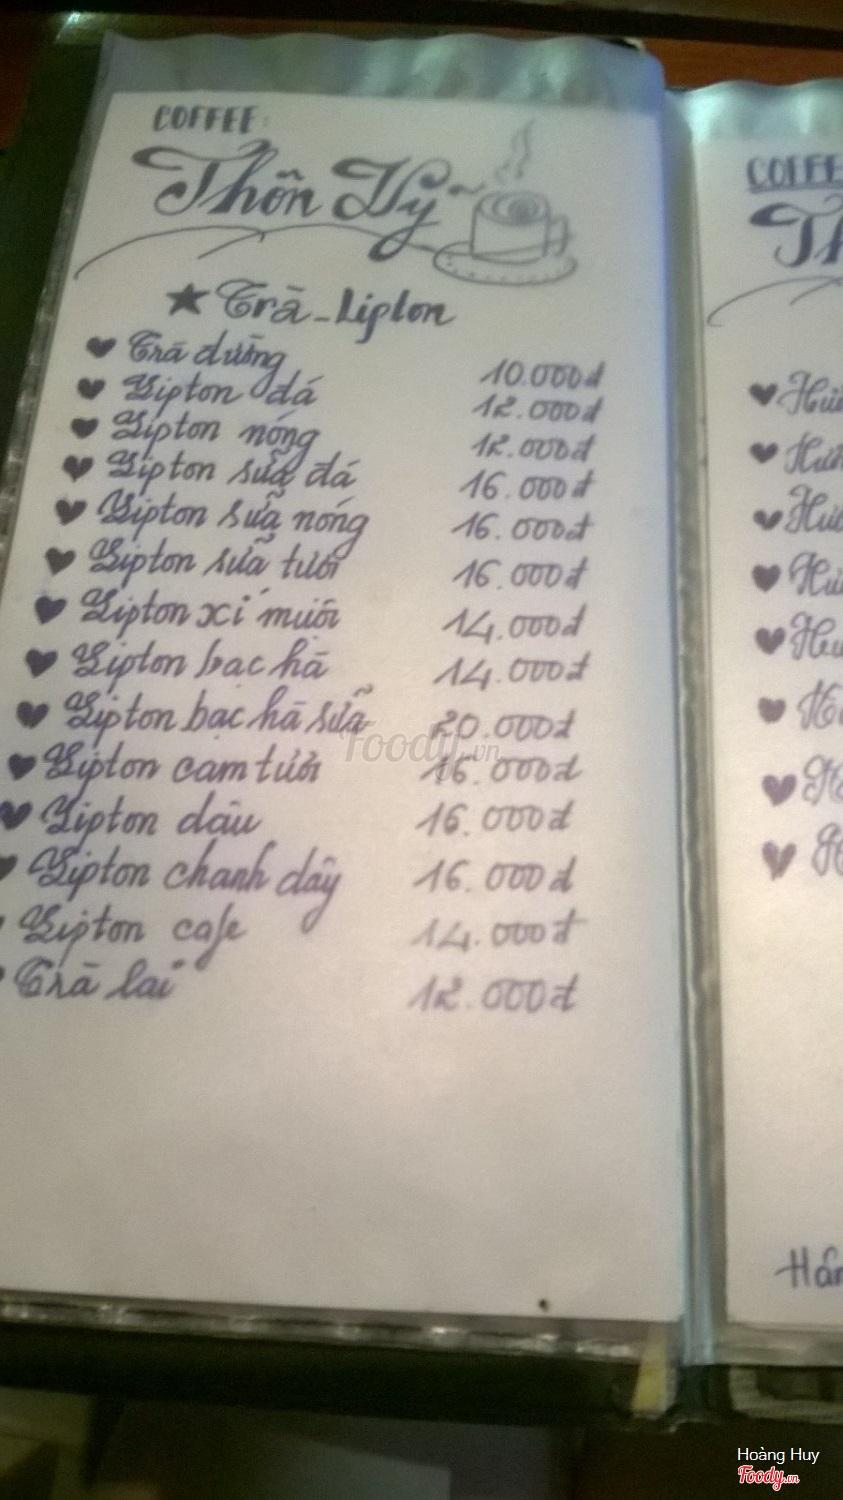 COFFEE:
Thôn Vỹ
★ Trà - Lipton
♥ Trà đường 10.000đ
♥ Lipton đá 12.000đ
♥ Lipton nóng 12.000đ
♥ Lipton sữa đá 16.000đ
♥ Lipton sữa nóng 16.000đ
♥ Lipton sữa tươi 16.000đ
♥ Lipton xí muội 14.000đ
♥ Lipton bạc hà 14.000đ
♥ Lipton bạc hà sữa 20.000đ
♥ Lipton cam tươi 16.000đ
♥ Lipton dâu 16.000đ
♥ Lipton chanh dây 16.000đ
Lipton cafe 14.000đ
Trà lài 12.000đ
COFFE
Foody.vn
Hoàng Huy
Foody.vn